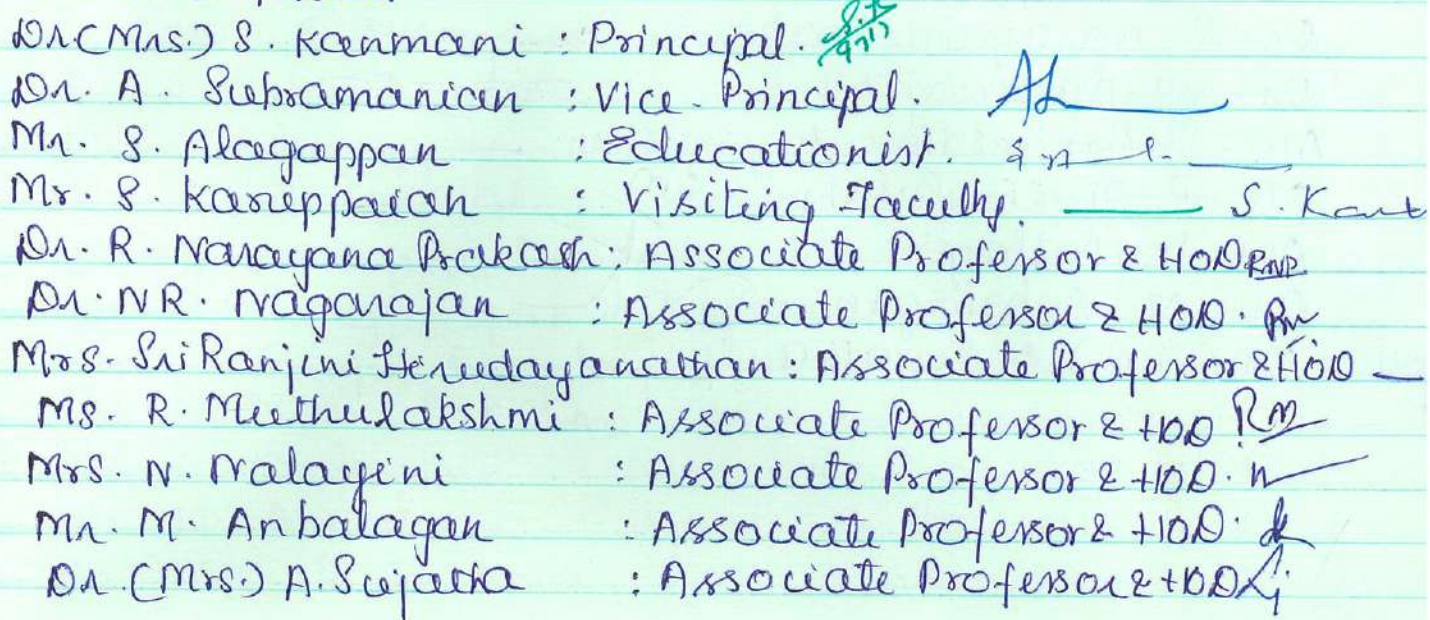 Dr (Mrs.) S. Kanmani : Principal.
Dr. A. Subramanian : Vice - Principal.
Mr. S. Alagappan : Educationist.
Mr. S. Karuppaiah : Visiting Faculty. S. Kart
Dr. R. Narayana Prakash : Associate Professor & HOD RNP
Dr. NR. Nagarajan : Associate Professor & HOD.
Mrs. Sri Ranjini : Associate Professor & HOD
Ms. R. Muthulakshmi : Associate Professor & HOD RM
Mrs. N. Nalayini : Associate Professor & HOD. N
Mr. M. Anbalagan : Associate Professor & HOD.
Dr. (Mrs.) A. Sujatha : Associate Professor & HOD